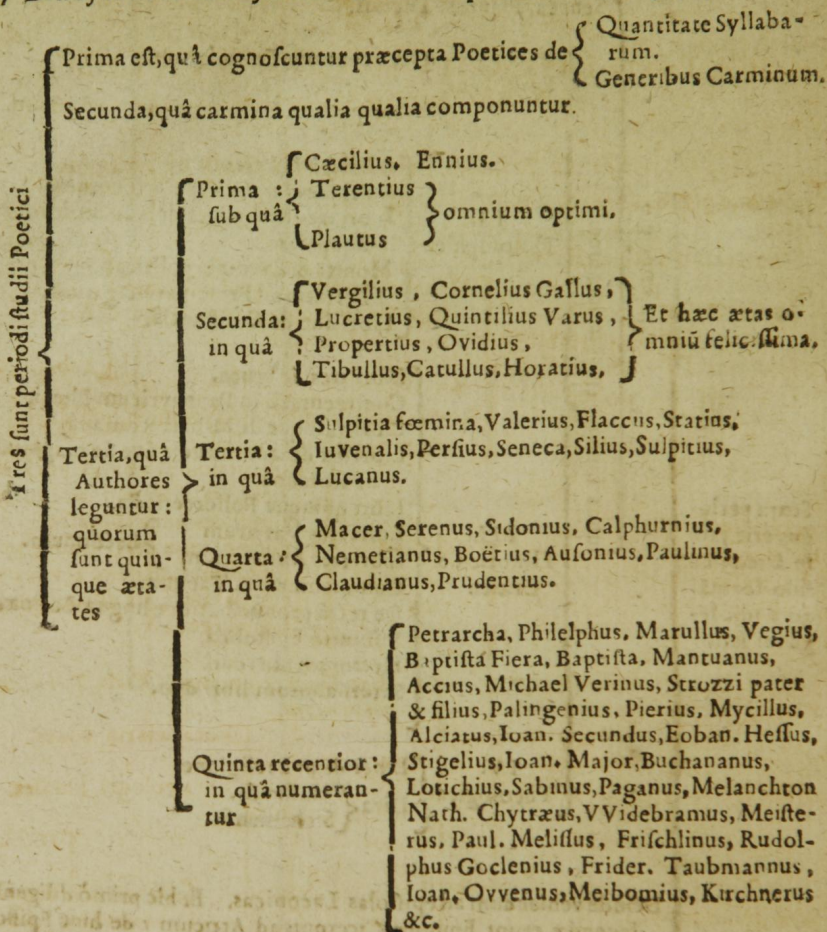 Tres sunt periodi studii Poetici
Prima est, quâ cognoscuntur præcepta Poetices de
Quantitate Syllaba-
rum.
Generibus Carminum.
Secunda, quâ carmina qualia qualia componuntur.
Tertia, quâ
Authores
leguntur:
quorum
sunt quin-
que æta-
tes
Prima:
sub quâ
Cæcilius, Ennius.
Terentius
Plautus
omnium optimi.
Secunda:
in quâ
Vergilius, Cornelius Gallus,
Lucretius, Quintilius Varus,
Propertius, Ovidius,
Tibullus, Catullus, Horatius.
Et hæc ætas o-
mniũ felicissima.
Tertia:
in quâ
Sulpitia fœmina, Valerius, Flaccus, Statius,
Iuvenalis, Persius, Seneca, Silius, Sulpitius,
Lucanus.
Quarta:
in quâ
Macer, Serenus, Sidonius, Calphurnius,
Nemetianus, Boëtius, Ausonius, Paulinus,
Claudianus, Prudentius.
Quinta recentior:
in quâ numeran-
tur
Petrarcha, Philelphus, Marullus, Vegius,
Baptista Fiera, Baptista, Mantuanus,
Accius, Michael Verinus, Strozzi pater
& filius, Palingenius, Pierius, Mycillus,
Alciatus, Ioan. Secundus, Eoban. Hessus,
Stigelius, Ioan. Major, Buchananus,
Lotichius, Sabinus, Paganus, Melanchton
Nath. Chytræus, VVidebramus, Meiste-
rus, Paul. Melissus, Frischlinus, Rudol-
phus Goclenius, Frider. Taubmannus,
Ioan. Ovvenus, Meibomius, Kirchnerus
&c.